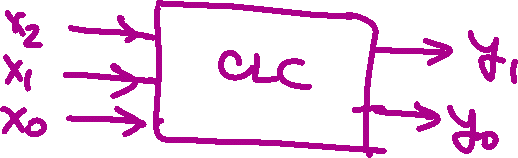 x₂
x₁
x₀
CLC
y₁
y₀